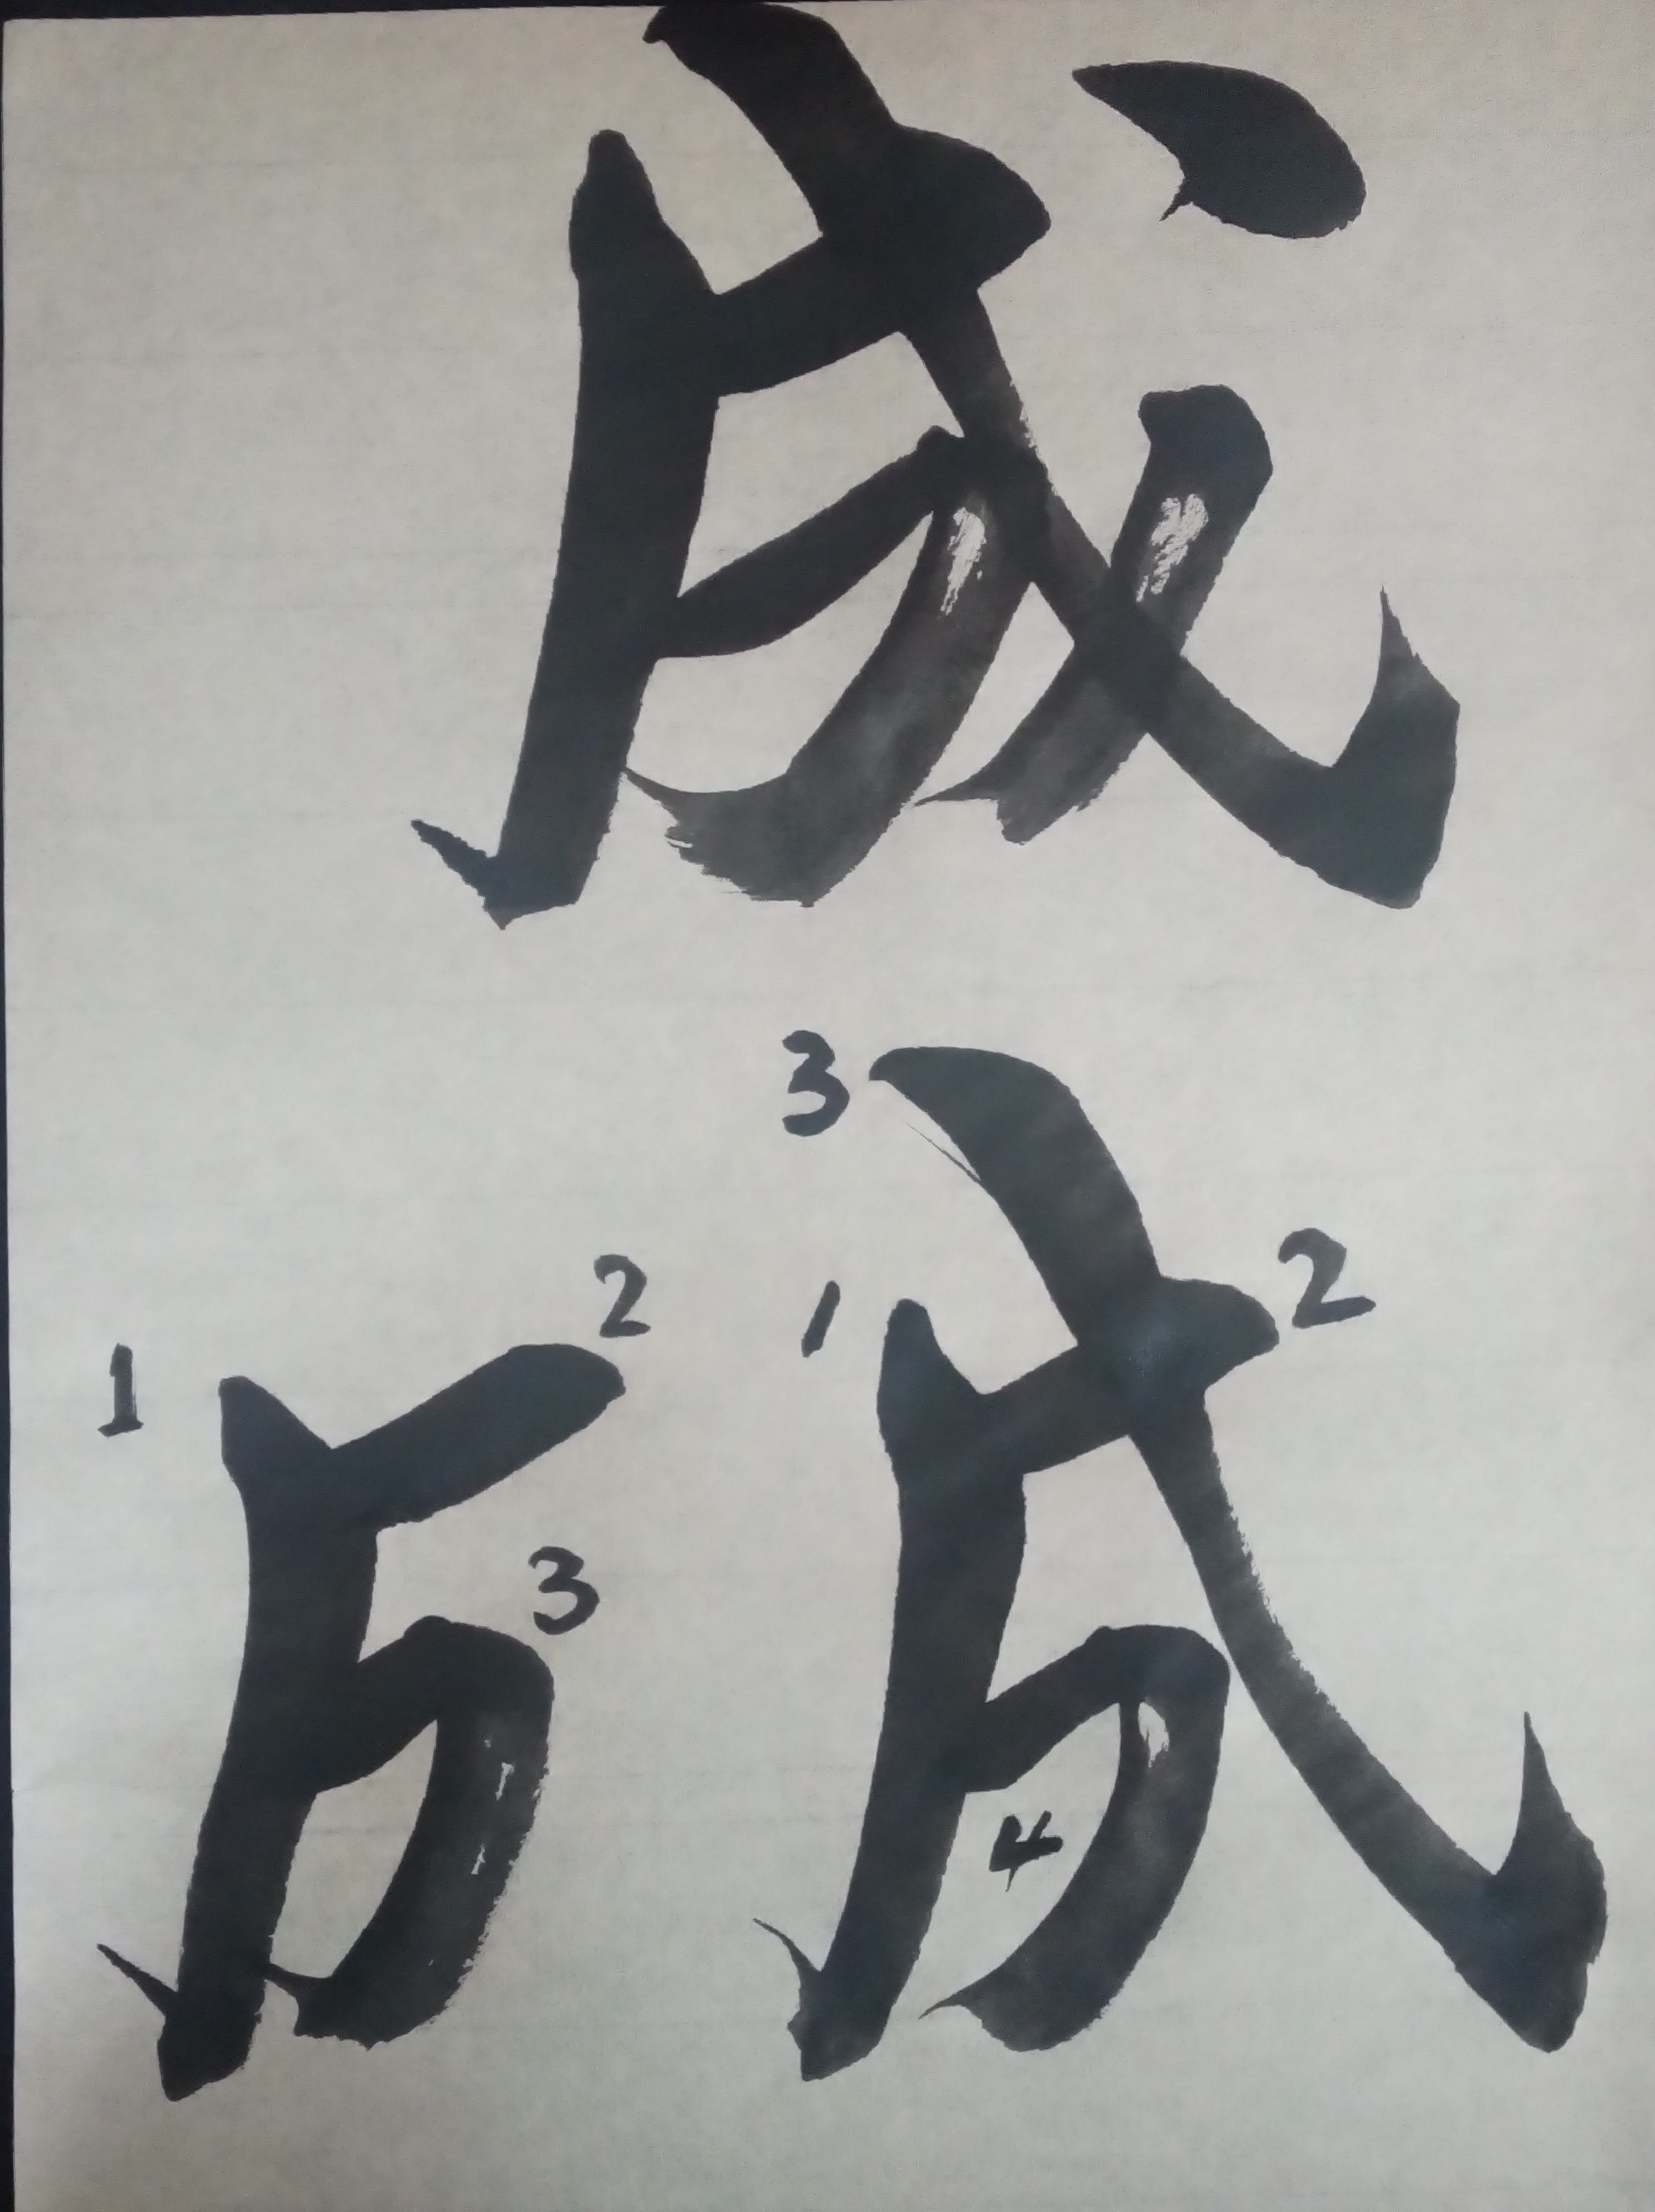 成
3
1 2
1 2
3
4